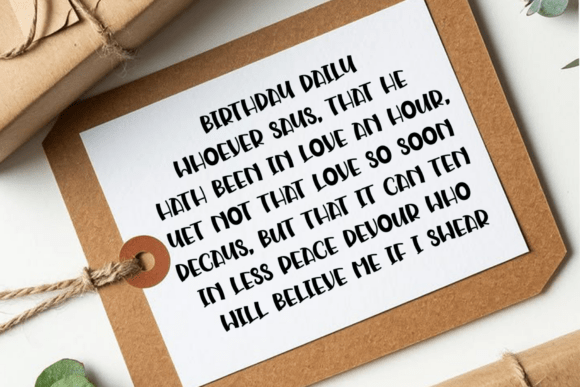 BIRTHDAY DAILY
WHOEVER SAYS, THAT HE
HATH BEEN IN LOVE AN HOUR,
YET NOT THAT LOVE SO SOON
DECAYS, BUT THAT IT CAN TEN
IN LESS PEACE DEVOUR WHO
WILL BELIEVE ME IF I SWEAR